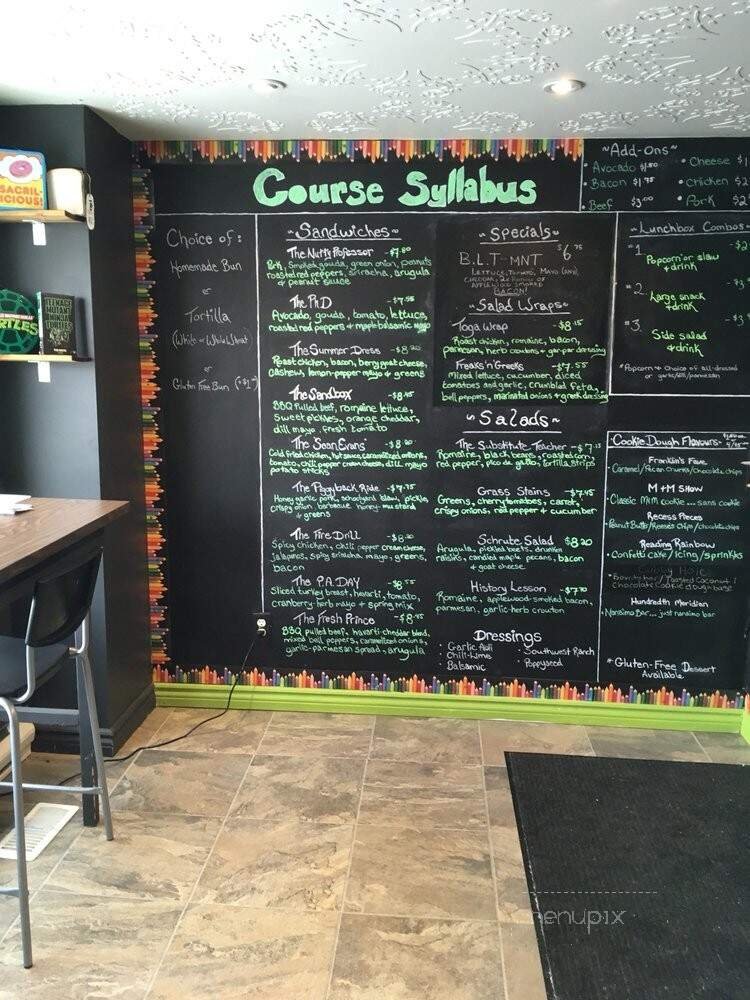 SACRIL-
ICIOUS!
TURTLES
TEENAGE
MUTANT
NINJA
TURTLES
Course Syllabus
Choice of:
Homemade Bun
or
Tortilla
(White or Whole Wheat)
or
Gluten Free Bun
~Sandwiches~
The Nutty Professor -$7.80
Pork, smoked gouda, green onion, peanuts
roasted red peppers, sriracha, arugula
& peanut sauce
The Ph.D -$7.55
Avocado, gouda, tomato, lettuce,
roasted red peppers + maple balsamic mayo
The Summer Dress -$8.20
Roast chicken, bacon, berry goat cheese,
cashews, lemon-pepper mayo & greens
The Sandbox -$8.45
BBQ Pulled beef, romaine lettuce,
Sweet pickles, orange cheddar,
dill mayo, fresh tomato
The 'Sean Evans' -$8.20
Cold fried chicken, hot sauce, caramelized onions,
tomato, chili pepper cream cheese, dill mayo
potato sticks
The Piggyback Ride -$7.75
Honey garlic pork, schoolyard slaw, pickle,
crispy onion, barbecue honey-mustard
& greens
The Fire Drill -$8.20
Spicy chicken, chili pepper cream cheese,
jalapenos, spicy sriracha mayo, greens,
bacon
The P.A. DAY -$8.55
Sliced turkey breast, havarti, tomato,
cranberry-herb mayo + spring mix
The Fresh Prince -$8.45
BBQ pulled beef, havarti-cheddar blend,
mixed bell peppers, caramelized onion,
garlic-parmesan spread, arugula
~Specials~
B.L.T-MNT $6.75
Lettuce, Tomato, Mayo (and)
Cheddar, 2x
Applewood Smoked
BACON!
~Salad Wraps~
Toga Wrap -$8.15
Roast chicken, romaine, bacon,
parmesan, herb croutons & gar-par dressing
Freaks 'n Greeks -$7.55
Mixed lettuce, cucumber, diced
tomatoes and garlic, crumbled feta,
bell peppers, marinated onions & greek dressing
~Salads~
The Substitute Teacher -$7.15
Romaine, black beans, roasted corn,
red pepper, pico de gallo, tortilla strips
Grass Stains -$7.45
Greens, cherry tomatoes, carrot,
crispy onions, red pepper & cucumber
Schrute Salad $8.20
Arugula, pickled beets, drunken
raisins, candied maple pecans, bacon
& goat cheese
History Lesson -$7.70
Romaine, applewood-smoked bacon,
parmesan, garlic-herb crouton
Dressings
· Garlic Aioli
· Chili-Lime
· Balsamic
· Southwest Ranch
· Poppyseed
~Add-Ons~
· Avocado $1.50
· Bacon $1.75
· Beef $3.00
· Cheese $1
· Chicken $2
· Pork $2
~Lunchbox Combos~
#1. -$3
Popcorn or slaw
+ drink
#2. -$3
Large snack
+ drink
#3. -$3
Side salad
& drink
*Popcorn ~ Choice of all-dressed
or garlic/dill/parmesan
Cookie Dough Flavours
Franklin's Fave
· Caramel/Pecan Chunks/Chocolate chips
M+M SHOW
· Classic M+M cookie... sans cookie
Recess Pieces
· Peanut Butter/Reese's Chips/chocolate chips
Reading Rainbow
· Confetti cake/Icing/sprinkles
· Bounty bar/Toasted Coconut/
Chocolate Cookie dough base
Hundredth Meridian
· Nanaimo Bar... just nanaimo bar
*Gluten-Free Dessert
Available
menupix